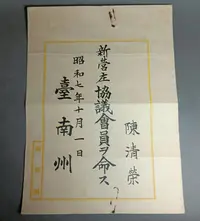 陳清榮
新營庄協議會員ヲ命ス
昭和七年十月一日
臺南州